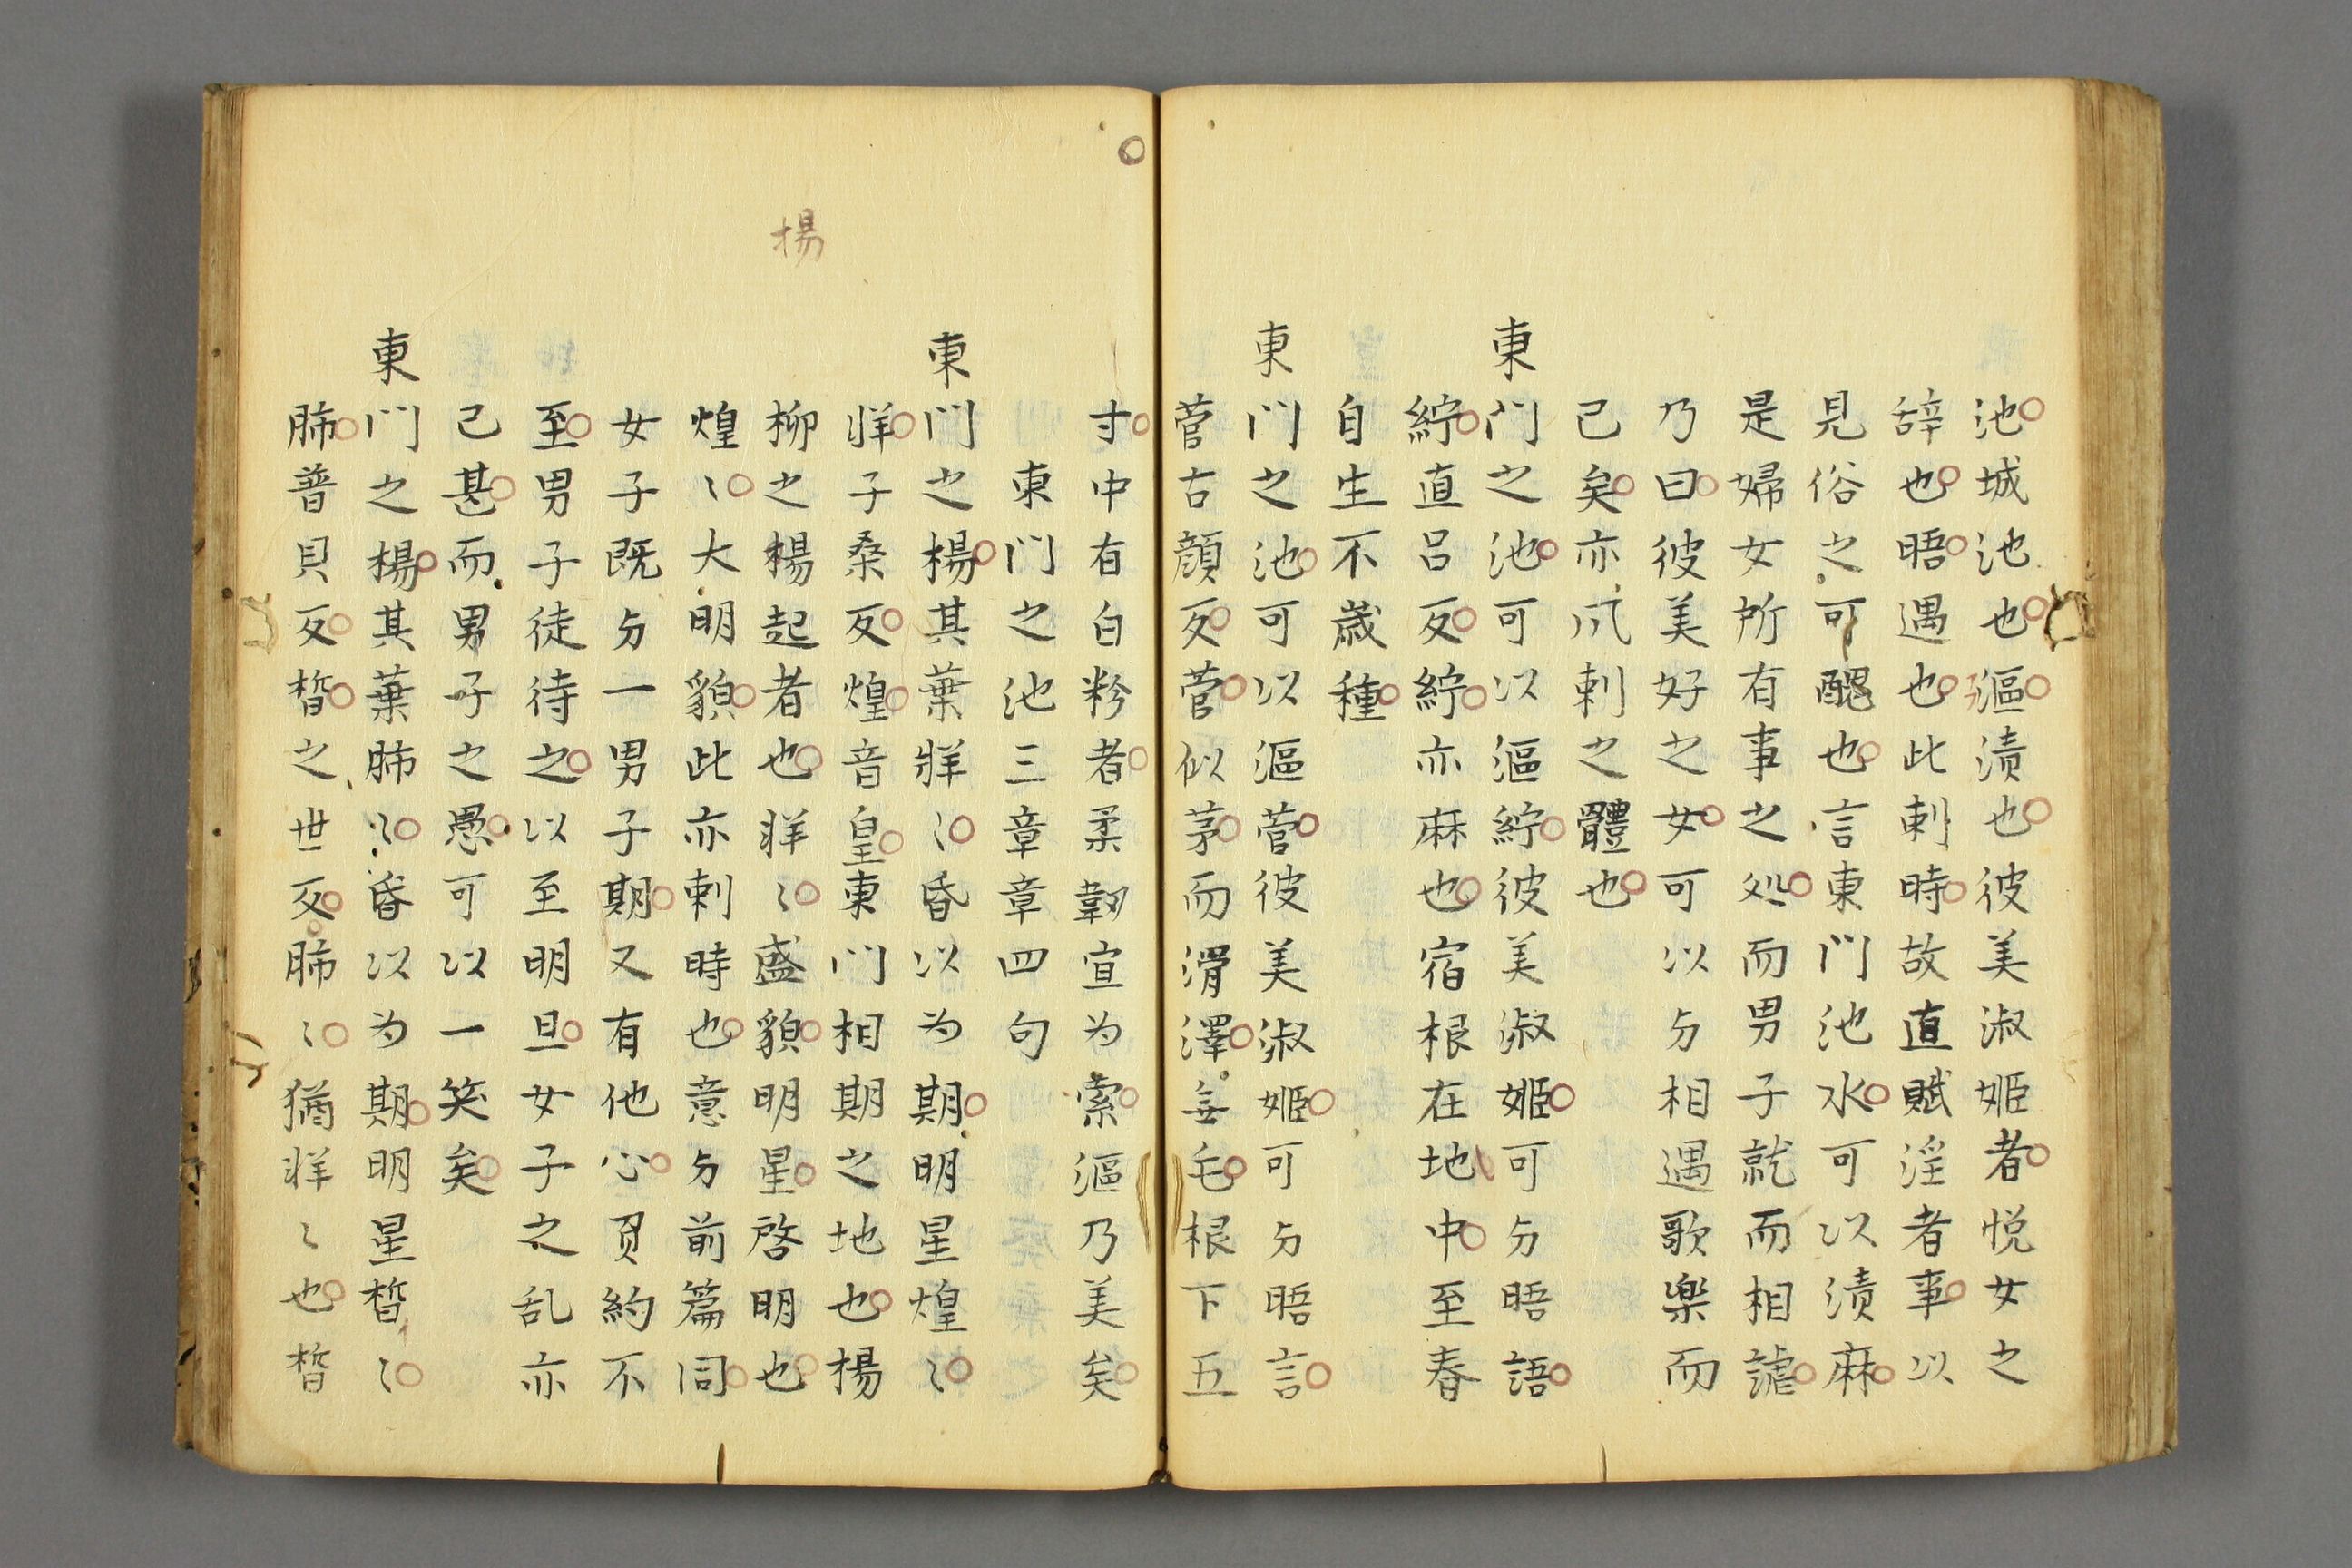 池城池也漚漬也彼美淑姬者悅女之
辞也晤遇也此刺時故直賦淫者事以
見俗之可醜也言東門池水可以漬麻
是婦女所有事之処而男子就而相謔
乃曰彼美好之女可以与相遇歌楽而
已矣亦凨刺之體也
東門之池可以漚紵彼美淑姬可与晤語
紵直呂反紵亦麻也宿根在地中至春
自生不歲種
東門之池可以漚菅彼美淑姬可与晤言
菅古顔反菅似茅而滑澤無毛根下五
寸中有白粉者柔韌宜为索漚乃美矣
東門之池三章章四句
東門之楊其葉牂〻昏以为期明星煌〻
牂子桑反煌音皇東門相期之地也楊
柳之楊起者也牂〻盛貌明星啓明也
煌〻大明貌此亦刺時也意与前篇同
女子既与一男子期又有他心負約不
至男子徒待之以至明旦女子之乱亦
已甚而男子之愚可以一笑矣
東門之楊其葉肺〻昏以为期明星晳〻
肺普貝反晳之世反肺〻猶牂〻也晳
楊